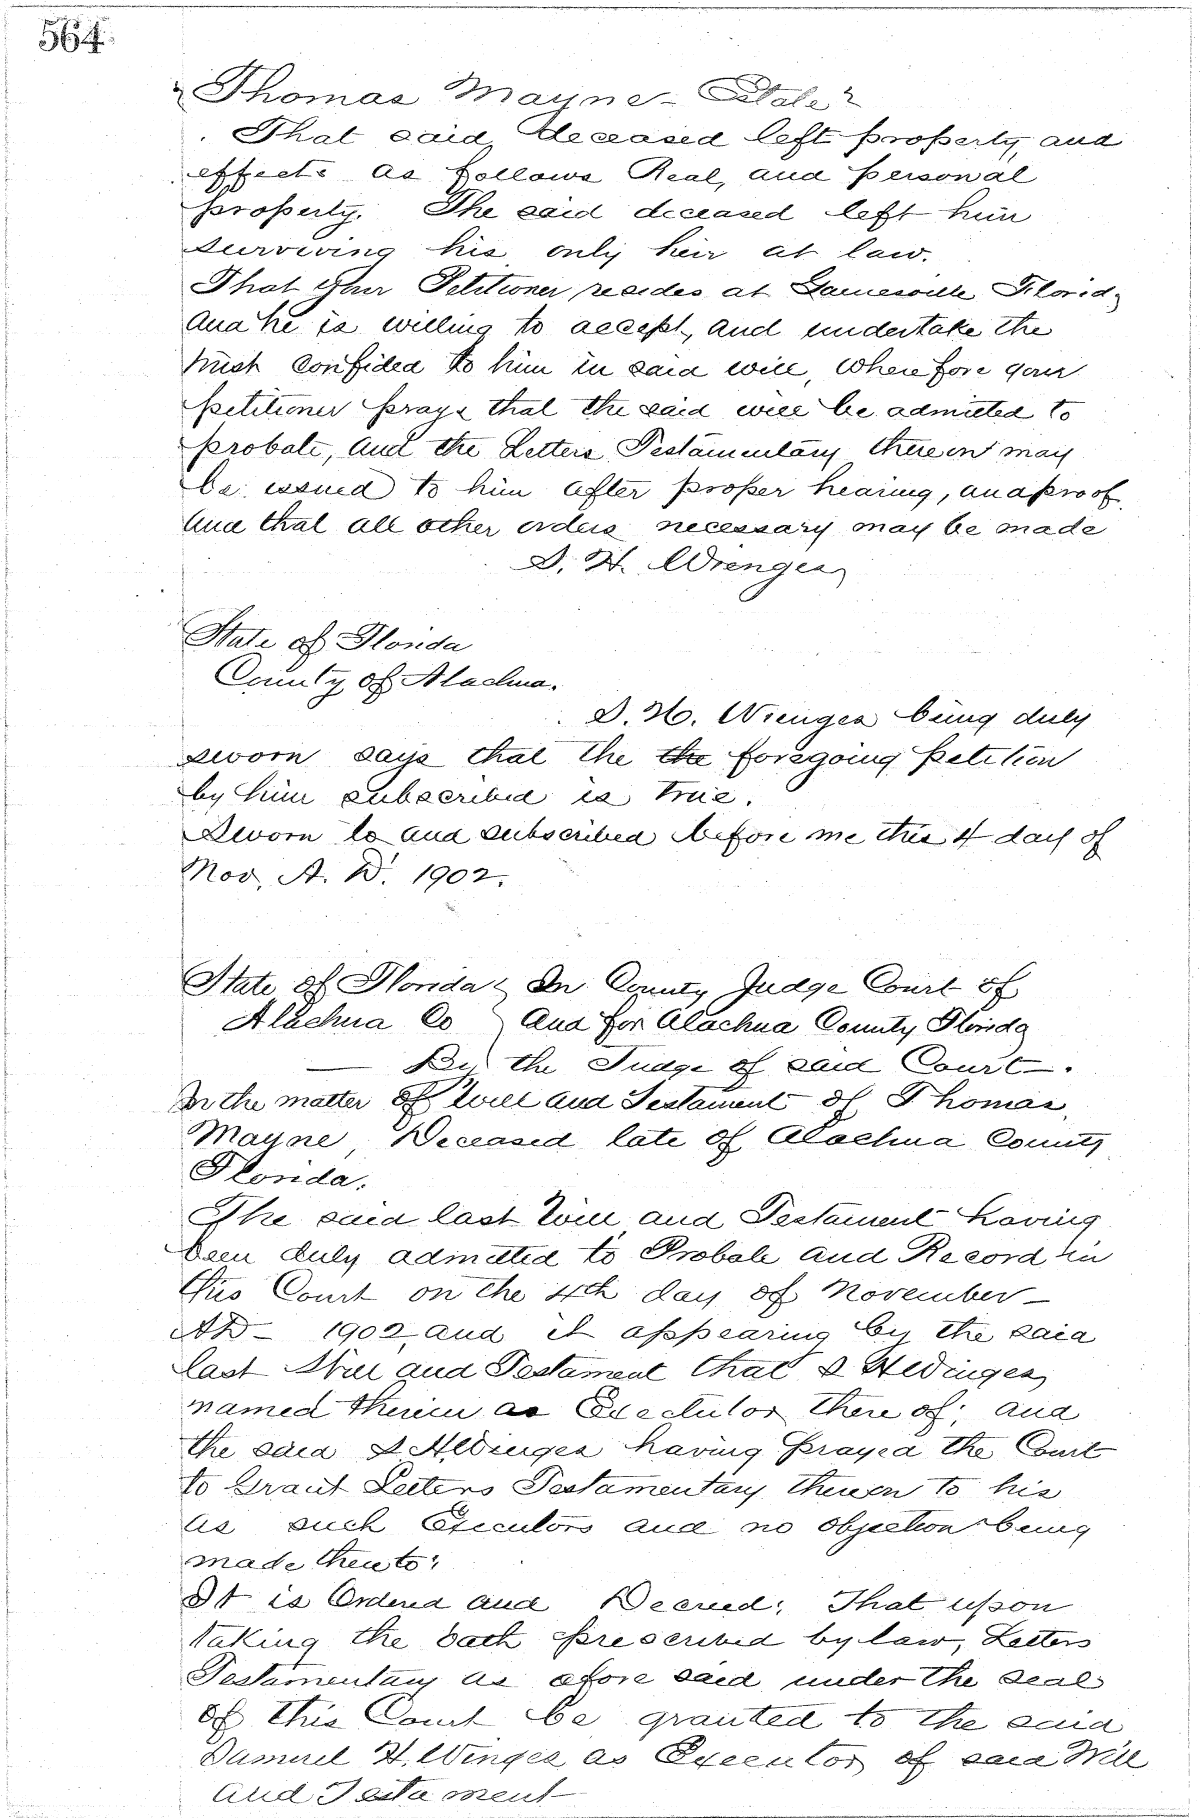 564
"Thomas Mayne - Estate"
That said deceased left property, and
effects as follows Real, and personal
property. The said deceased left him
surviving his only heir at law.
That your Petitioner resides at Gainesville Florida
and he is willing to accept, and undertake the
trust confided to him in said will, Wherefore your
petitioner prays that the said will be admitted to
probate, and the Letters Testamentary thereon may
be issued to him after proper hearing, and proof.
And that all other orders necessary may be made
S. H. Wienges
State of Florida
County of Alachua.
S. H. Wienges being duly
sworn says that the the foregoing petition
by him subscribed is true.
Sworn to and subscribed before me this 4 day of
Nov, A. D. 1902.
State of Florida } In County Judge Court of
Alachua Co } and for Alachua County Florida
By the Judge of said Court.
In the matter of Will and Testament of Thomas
Mayne, Deceased late of Alachua County
Florida.
The said last Will and Testament having
been duly admitted to Probate and Record in
this Court on the 4th day of November
AD - 1902, and it appearing by the said
last Will and Testament that S H Winges
named therein as Executor there of; and
the said S. H. Winges having prayed the Court
to Grant Letters Testamentary thereon to his
as such Executors and no objection being
made thereto:
It is Ordered and Decreed: That upon
taking the oath prescribed by law, Letters
Testamentary as afore said under the seal
of this Court be granted to the said
Samuel H. Winges as Executor of said Will
and Testament